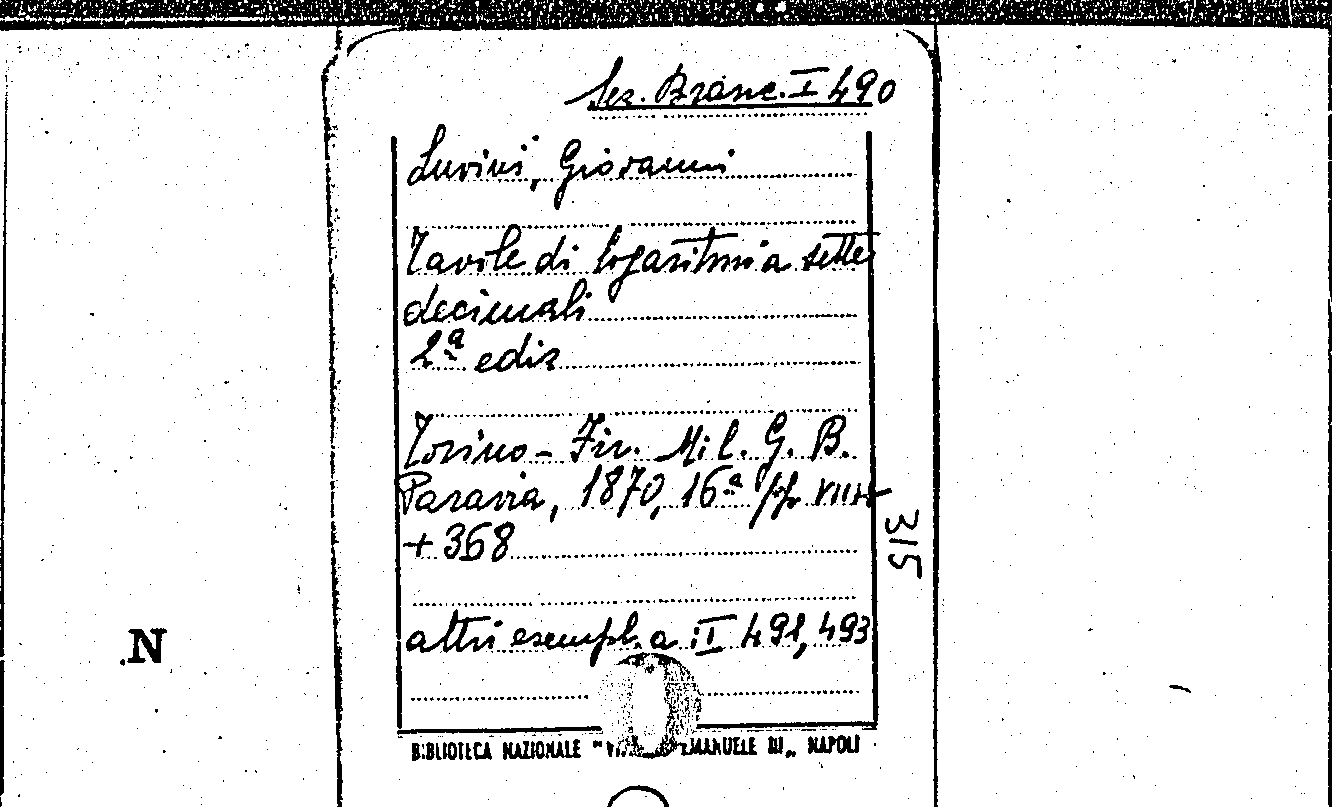 Sez. Branc. I 490
Luvini, Giovanni
Tavole di logaritmi a sette
decimali
2ª ediz
Torino - Fir. Mil. G. B.
Paravia, 1870, 16ª pp. VIII
+ 368
315
altri esempl. a : II 491, 493
N
BIBLIOTECA NAZIONALE " EMANUELE III „ NAPOLI